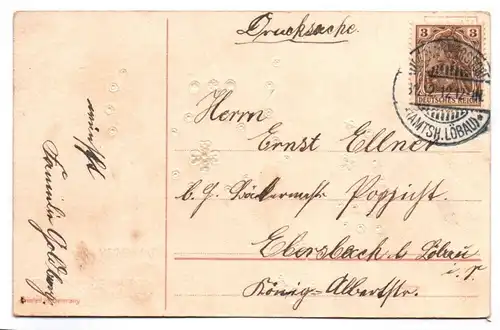 Drucksache.
3 3
DEUTSCHES REICH
(AMTSH. LÖBAU)
Herrn
Ernst Ellner
b. H. Bäckermstr Poppicht
Ebersbach b. Löbau
i. S.
König-Albertstr.
wünscht
Familie